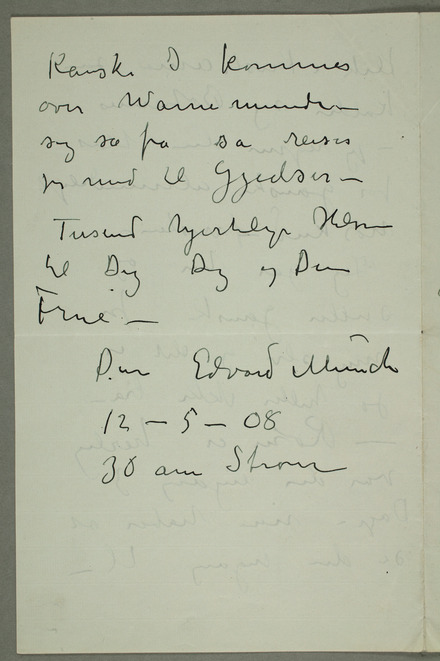 Kanske I kommer
over Warnemunde –
sig så fra så reiser
jeg med til Gjedser –
Tusend hjertelige Hilsen
til Dig og Din
Frue –
Din Edvard Munch
12 – 5 – 08
30 am Strom